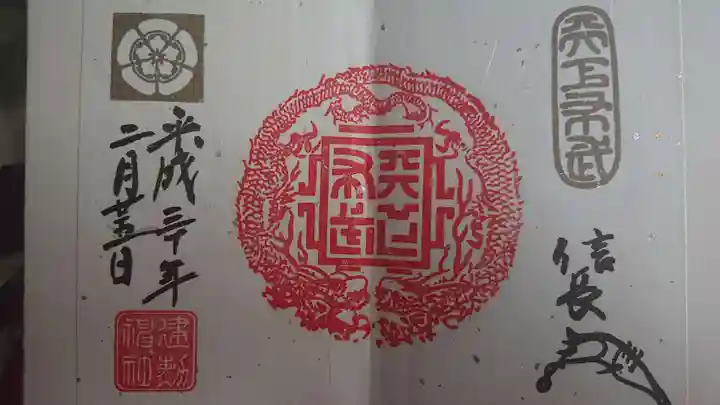 天下布武
信長
天下布武
平成三十年
二月廿五日
建勲神社